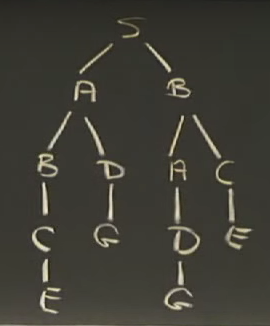 S
A B
B D A C
C G D E
E G